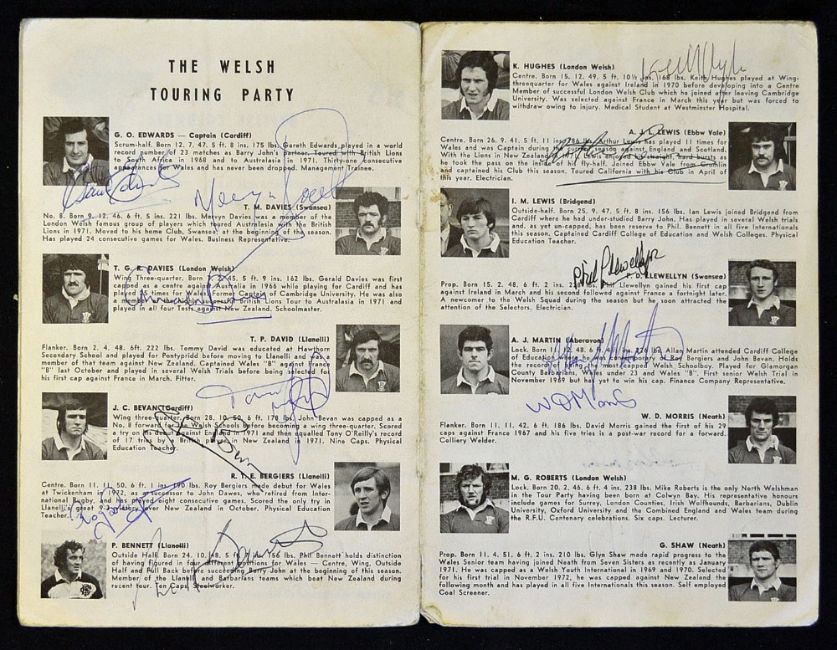 THE WELSH
TOURING PARTY
G. O. EDWARDS — Captain (Cardiff)
Scrum-half. Born 12, 7, 47, 5 ft. 8 ins. 175 lbs. Gareth Edwards played in a world
record number of 23 matches as Barry John's partner. Toured with British Lions
to South Africa in 1968 and to Australasia in 1971. Thirty-one consecutive
appearances for Wales and has never been dropped. Management Trainee.
T. M. DAVIES (Swansea)
No. 8. Born 9, 12, 46, 6 ft. 5 ins. 221 lbs. Mervyn Davies was a member of the
London Welsh famous group of players which toured Australasia with the British
Lions in 1971. Moved to his home Club, Swansea at the beginning of the season.
Has played 24 consecutive games for Wales. Business Representative.
T. G. R. DAVIES (London Welsh)
Wing Three-quarter. Born 45, 5 ft. 9 ins. 162 lbs. Gerald Davies was first
capped as a centre against Australia in 1966 while playing for Cardiff and has
played 25 times for Wales. Former Captain of Cambridge University. He was also
a member of the British Lions Tour to Australasia in 1971 and
played in all four Tests against New Zealand. Schoolmaster.
T. P. DAVID (Llanelli)
Flanker. Born 2, 4, 48. 6ft. 222 lbs. Tommy David was educated at Hawthorn
Secondary School and played for Pontypridd before moving to Llanelli and was a
member of that team against New Zealand. Captained Wales "B" against France
"B" last October and played in several Welsh Trials before being selected for
his first cap against France in March. Fitter.
J. C. BEVAN (Cardiff)
Wing three-quarter. Born 28, 10, 50, 6 ft. 170 lbs. John Bevan was capped as a
No. 8 forward for Welsh Schools before becoming a wing three-quarter. Scored
a try on his debut against England in 1971 and then equalled Tony O'Reilly's record
of 17 tries by a British player in New Zealand in 1971. Nine Caps. Physical
Education Teacher.
R. T. E. BERGIERS (Llanelli)
Centre. Born 11, 11, 50, 6 ft. 1 ins. 190 lbs. Roy Bergiers made debut for Wales
at Twickenham in 1972, as successor to John Dawes, who retired from Inter-
national Rugby, and has played eight consecutive games. Scored the only try in
Llanelli's great 9-3 victory over New Zealand in October. Physical Education
Teacher.
P. BENNETT (Llanelli)
Outside Half. Born 24, 10, 48, 5 ft. ins. 156 lbs. Phil Bennett holds distinction
of having figured in four different positions for Wales — Centre, Wing, Outside
Half and Full Back before succeeding Barry John at the beginning of this season.
Member of the Llanelli and Barbarians teams which beat New Zealand during
recent tour. Ten Caps. Steelworker.
K. HUGHES (London Welsh)
Centre. Born 15, 12, 49, 5 ft. 10½ ins. 168 lbs. Keith Hughes played at Wing-
threequarter for Wales against Ireland in 1970 before developing into a Centre
Member of successful London Welsh Club which he joined after leaving Cambridge
University. Was selected against France in March this year but was forced to
withdraw owing to injury. Medical Student at Westminster Hospital.
A. J. L. LEWIS (Ebbw Vale)
Centre. Born 26, 9, 41, 5 ft. 11 ins. lbs. Arthur Lewis has played 11 times for
Wales and was Captain during the current season against England and Scotland.
With the Lions in New Zealand 1971, Lewis enjoyed straight, hard bursts as
he took the pass in midfield. Joined Ebbw Vale from Crumlin
and captained his Club this Season. Toured California with his Club in April of
this year. Electrician.
I. M. LEWIS (Bridgend)
Outside-half. Born 25, 9, 47, 5 ft. 8 ins. 156 lbs. Ian Lewis joined Bridgend from
Cardiff where he had under-studied Barry John. Has played in several Welsh trials
and, as yet un-capped, has been reserve to Phil. Bennett in all five Internationals
this season. Captained Cardiff College of Education and Welsh Colleges. Physical
Education Teacher.
LLEWELLYN (Swansea)
Prop. Born 15, 2, 48, 6 ft. 2 ins. Phil Llewellyn gained his first cap
against Ireland in March and his second against France a fortnight later.
A newcomer to the Welsh Squad during the season but he soon attracted the
attention of the Selectors. Electrician.
A. J. MARTIN (Aberavon)
Lock. Born 11, 12, 48, 6 ft. 5 ins. lbs. Allan Martin attended Cardiff College
of Education where he was a contemporary of Roy Bergiers and John Bevan. Holds
the record of being the most-capped Welsh Schoolboy. Played for Glamorgan
County Barbarians, Wales under 23 and Wales "B". First senior Welsh Trial in
November 1969 but has yet to win his cap. Finance Company Representative.
W. D. MORRIS (Neath)
Flanker. Born 11, 11, 42, 6 ft. 186 lbs. David Morris gained the first of his 29
caps against France 1967 and his five tries is a post-war record for a forward.
Colliery Welder.
M. G. ROBERTS (London Welsh)
Lock. Born 20, 2, 46, 6 ft. 4 ins. 238 lbs. Mike Roberts is the only North Welshman
in the Tour Party having been born at Colwyn Bay. His representative honours
include games for Surrey, London Counties, Irish Wolfhounds, Barbarians, Dublin
University, Oxford University and the Combined England and Wales team during
the R.F.U. Centenary celebrations. Six caps. Lecturer.
G. SHAW (Neath)
Prop. Born 11, 4, 51, 6 ft. 2 ins. 210 lbs. Glyn Shaw made rapid progress to the
Wales Senior team having joined Neath from Seven Sisters as recently as January
1971. He was capped as a Welsh Youth International in 1969 and 1970. Selected
for his first trial in November 1972, he was capped against New Zealand the
following month and has played in all five Internationals this Season. Self employed
Coal Screener.
Phil Llewellyn
W D Morris